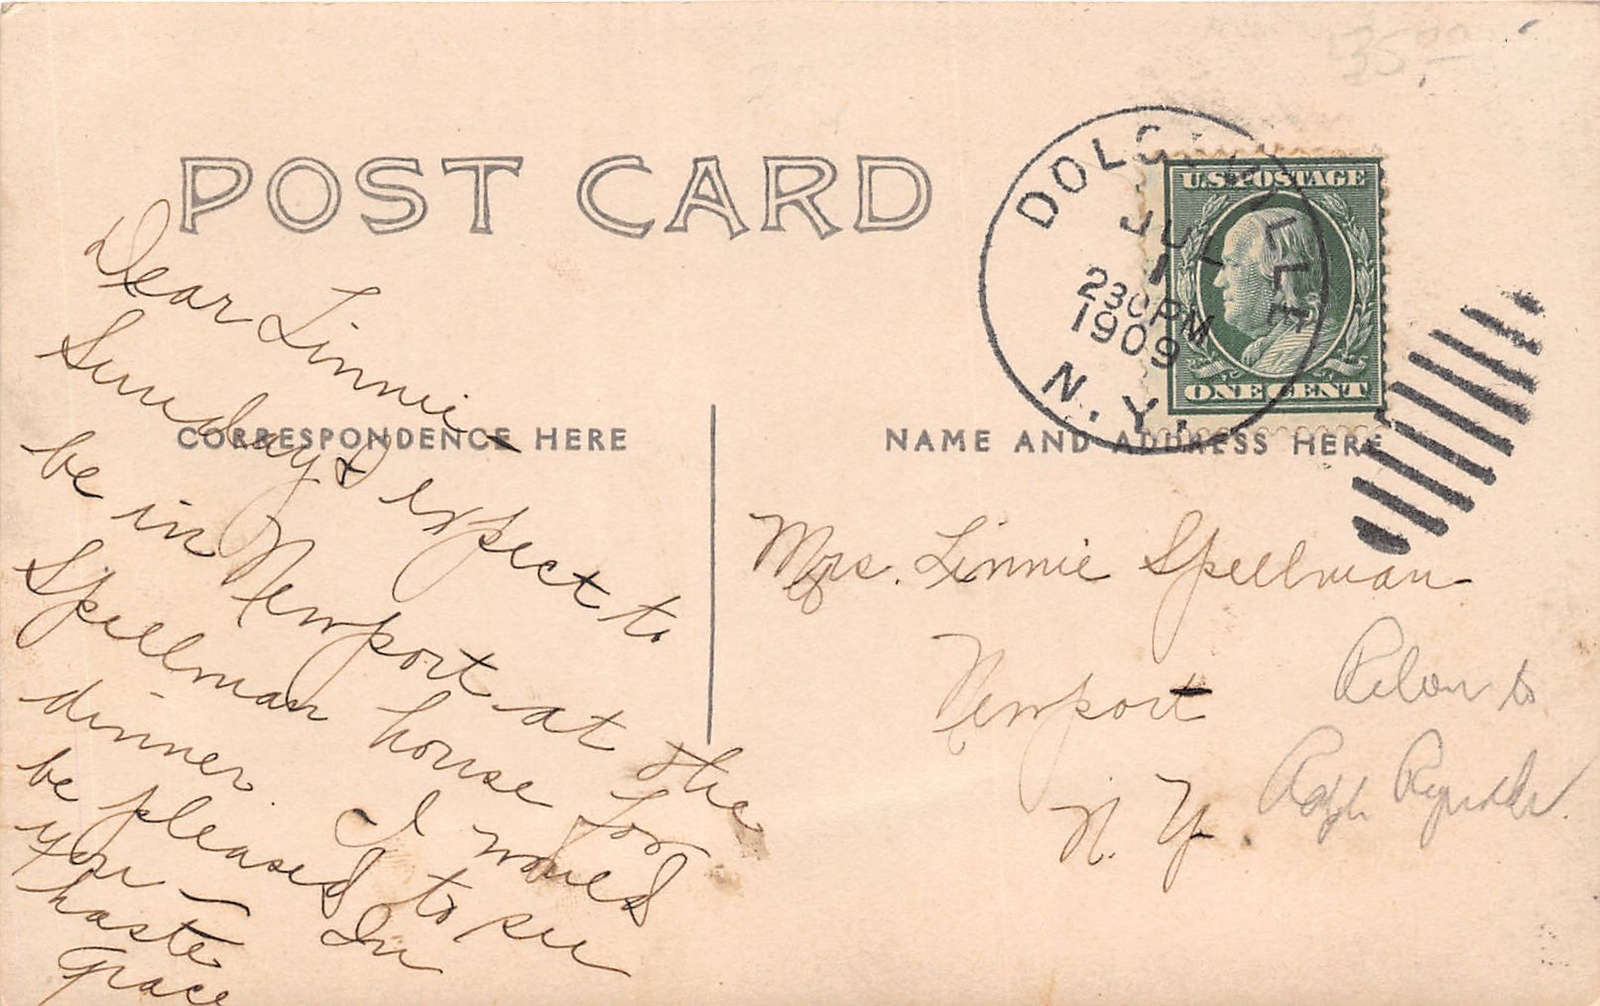 35.00
POST CARD
DOLGEVILLE
JUL
1
230PM
1909
N.Y.
U.S. POSTAGE
ONE CENT
CORRESPONDENCE HERE
NAME AND ADDRESS HERE
Dear Linnie –
Sunday I expect to
be in Newport at the
Spellman house for
dinner. I would
be pleased to see
you – In
haste
Grace
Mrs. Linnie Spellman
Newport
N. Y.
to
Ralph Reynolds